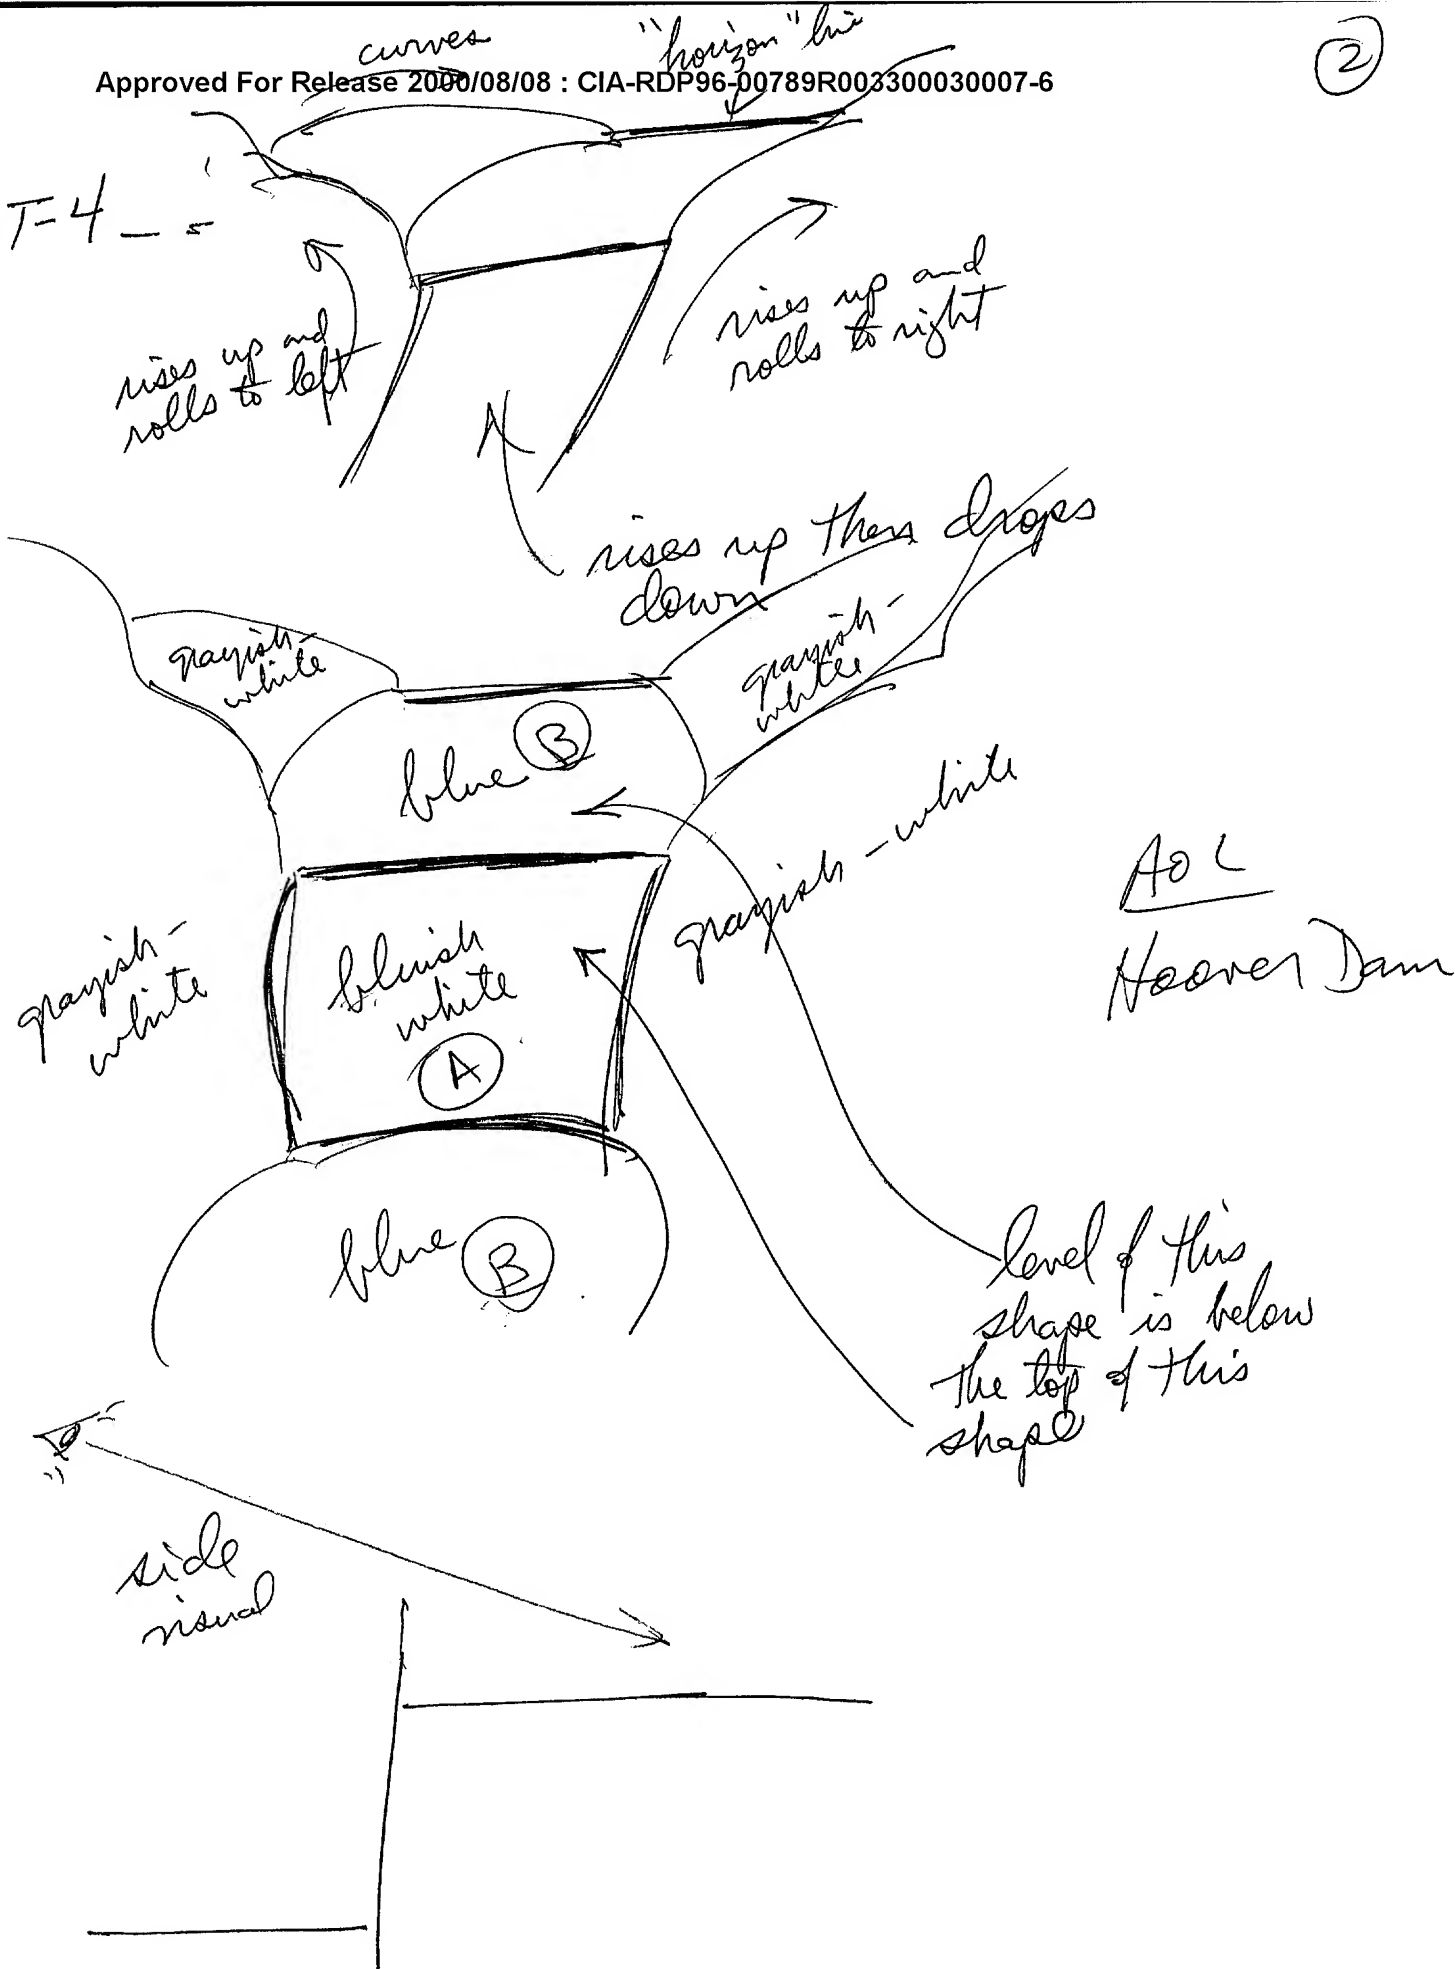 curves
"horizon" line
2
Approved For Release 2000/08/08 : CIA-RDP96-00789R003300030007-6
T=4
rises up and
rolls to left
rises up and
rolls to right
rises up then drops
down
grayish-
white
grayish-
white
blue B
grayish-white
AOL
Hoover Dam
grayish-
white
bluish
white
A
blue B
level of this
shape is below
the top of this
shape
side
visual